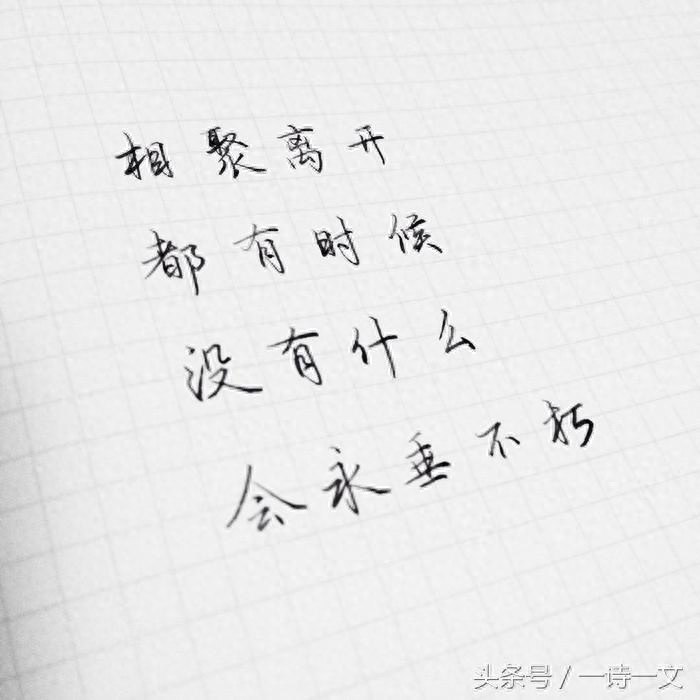 相聚离开
都有时候
没有什么
会永垂不朽
头条号/一诗一文